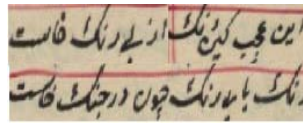 این عجب کین رنگ از بی رنگ خاست
رنگ با بی رنگ چون در جنگ خاست